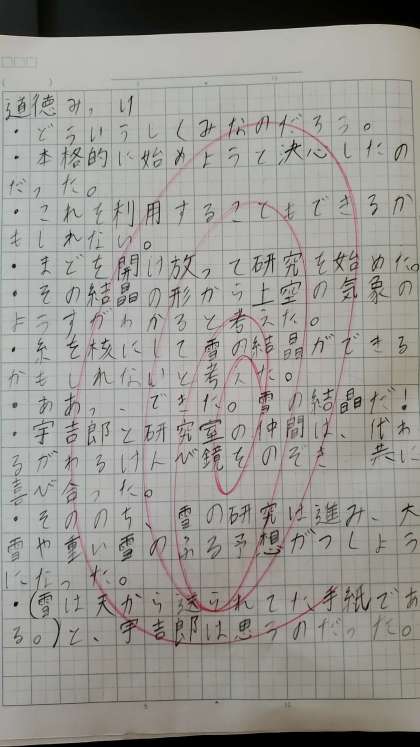 道徳み、け
・どういうしくみなのだろう。
・本格的に始めようと決心したの
だった。
・これを利用することもできるか
もしれない。
・まどを開け放って研究を始めた。
・その結晶の形から上空の気象の
ようすがわかると考えた。
・糸を核にして雪の結晶ができる
かもしれないと考えた。
・ああっ、できた。雪の結晶だ!
・宇吉郎と研究室の仲間は、代わ
るがわるけんび鏡をのぞき 共に
喜び合った。
・そののち、雪の研究は進み、大
雪や重い雪のふる予想がつくよう
になった。
・(雪は天から送られてた手紙であ
る。)と、宇吉郎は思うのだった。